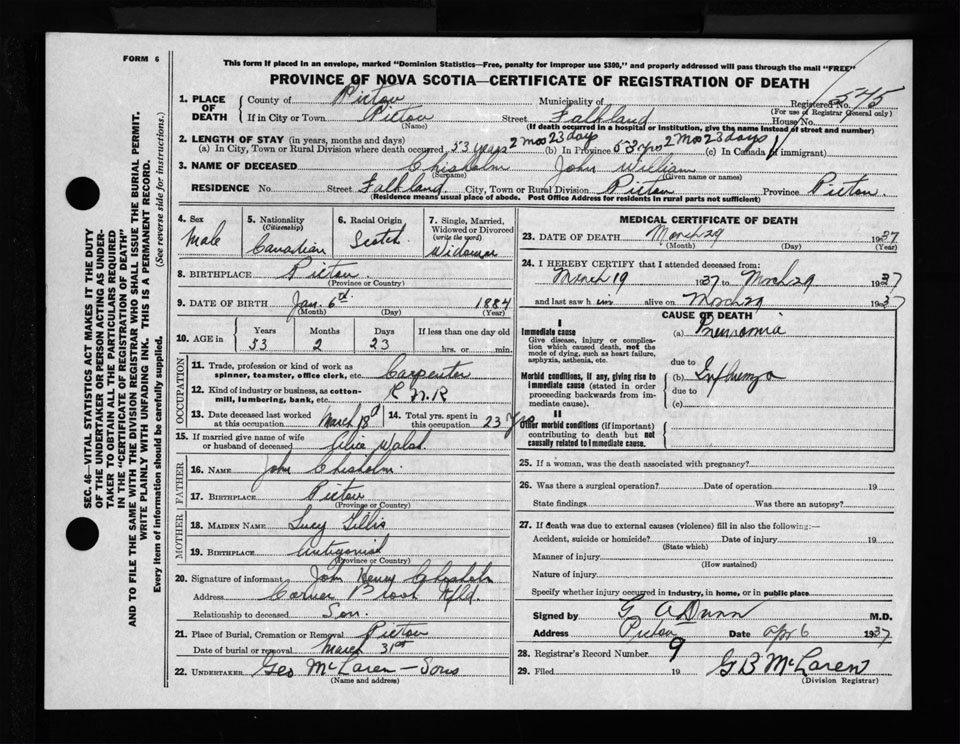 FORM 6
This form if placed in an envelope, marked "Dominion Statistics—Free, penalty for improper use $300," and properly addressed will pass through the mail "FREE"
PROVINCE OF NOVA SCOTIA—CERTIFICATE OF REGISTRATION OF DEATH
SEC. 46—VITAL STATISTICS ACT MAKES IT THE DUTY
OF THE UNDERTAKER OR PERSON ACTING AS UNDER-
TAKER TO OBTAIN ALL THE PARTICULARS REQUIRED
IN THE "CERTIFICATE OF REGISTRATION OF DEATH"
AND TO FILE THE SAME WITH THE DIVISION REGISTRAR WHO SHALL ISSUE THE BURIAL PERMIT.
WRITE PLAINLY WITH UNFADING INK. THIS IS A PERMANENT RECORD.
Every item of information should be carefully supplied. (See reverse side for instructions.)
1. PLACE OF DEATH County of Pictou Municipality of Registered No. 545
(For use of Registrar General only)
If in City or Town Pictou Street Falkland House No.
(Name) (If death occurred in a hospital or institution, give the name instead of street and number)
2. LENGTH OF STAY (in years, months and days)
(a) In City, Town or Rural Division where death occurred 53 years 2 mos 23 days (b) In Province 53 yrs 2 Mos 23 days (c) In Canada (if immigrant)
3. NAME OF DECEASED Chisholm John William
(Surname) (Given name or names)
RESIDENCE No. Street Falkland City, Town or Rural Division Pictou Province Pictou.
(Residence means usual place of abode. Post Office Address for residents in rural parts not sufficient)
4. Sex Male
5. Nationality (Citizenship) Canadian
6. Racial Origin Scotch
7. Single, Married, Widowed or Divorced (write the word) Widower
8. BIRTHPLACE Pictou.
(Province or Country)
9. DATE OF BIRTH Jan. 6th 1884
(Month) (Day) (Year)
10. AGE in Years 53 Months 2 Days 23 If less than one day old hrs. or min.
OCCUPATION
11. Trade, profession or kind of work as spinner, teamster, office clerk, etc. Carpenter
12. Kind of industry or business, as cotton-mill, lumbering, bank, etc. C N R
13. Date deceased last worked at this occupation March 18th
14. Total yrs. spent in this occupation 23 yrs
15. If married give name of wife or husband of deceased Alice Walsh
FATHER
16. NAME John Chisholm.
17. BIRTHPLACE Pictou
(Province or Country)
MOTHER
18. MAIDEN NAME Lucy Gillis
19. BIRTHPLACE Antigonish
(Province or Country)
20. Signature of informant John Henry Chisholm
Address Corner Brook Nfld.
Relationship to deceased Son.
21. Place of Burial, Cremation or Removal Pictou
Date of burial or removal March 31st
22. UNDERTAKER Geo McLaren - Sons
(Name and address)
MEDICAL CERTIFICATE OF DEATH
23. DATE OF DEATH March 29 1937
(Month) (Day) (Year)
24. I HEREBY CERTIFY that I attended deceased from:
March 19 1937 to March 29 1937
and last saw him alive on March 29 1937
CAUSE OF DEATH
I
Immediate cause
Give disease, injury or complication which caused death, not the mode of dying, such as heart failure, asphyxia, asthenia, etc.
(a) Pneumonia
due to
Morbid conditions, if any, giving rise to immediate cause (stated in order proceeding backwards from immediate cause).
(b) Influenza
due to
(c)
II
Other morbid conditions (if important) contributing to death but not causally related to immediate cause.
25. If a woman, was the death associated with pregnancy?
26. Was there a surgical operation? Date of operation 19
State findings Was there an autopsy?
27. If death was due to external causes (violence) fill in also the following:—
Accident, suicide or homicide? Date of injury 19
(State which)
Manner of injury
(How sustained)
Nature of injury
Specify whether injury occurred in industry, in home, or in public place
Signed by G A Dunn M.D.
Address Pictou Date Apr 6 1937
28. Registrar's Record Number 9
29. Filed 19 G B McLaren
(Division Registrar)